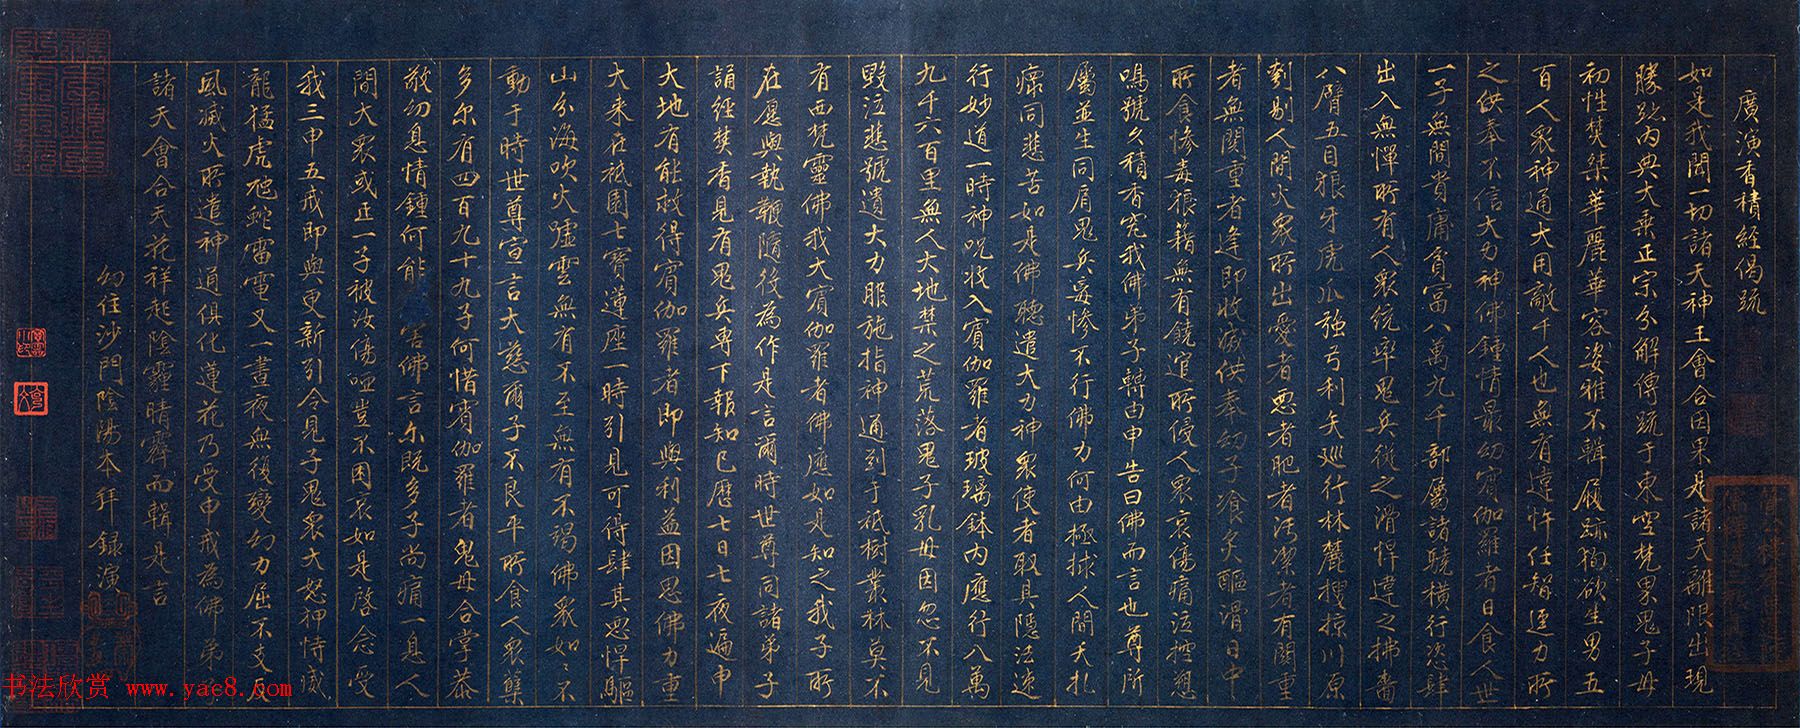 廣演香積經偈疏
如是我聞一切諸天神王會合因果是諸天離限出現
勝跡內典大乘正宗分解傳疏于東空梵果鬼子母
初性焚桀華麗華容姿雅不輯履跡狥欲生男五
百人衆神通大用敵千人也無有違忤任智逞力所
之供奉不信大力神佛鍾情最幼賓伽羅者日食人世
一子無間貴庸貧富八萬九千部屬諸驍橫行恣肆
出入無憚所有人衆統率鬼兵從之滑悍違之拂嗇
八臂五目狼牙虎爪強弓利矢巡行林麓搜掠川原
剗剔人間火衆所出愛者惡者肥者污潔者有關重
者無関重者逢即收滅供奉幼子飡炙醧滑日中
所食慘毒狼籍無有饒逭所侵人衆哀傷痛泣控愬
嗚號久積香究我佛弟子轉由申告曰佛而言也尊所
屬並生同肩鬼兵妄慘不行佛力何由極捄人間夭扎
瘝同悲苦如是佛聽遣大力神衆使者取具隱法迹
行妙道一時神呪收入賓伽羅者玻璃鉢內應行八萬
九千六百里無人大地禁之荒落鬼子乳母因忽不見
毀泣悲號遺大力服施指神通到于祇樹叢林莫不
有西梵靈佛我大賓伽羅者佛應如是知之我子所
在愿與執鞭隨後為作是言爾時世尊同諸弟子
誦經焚香見有鬼兵專下報知已歷七日七夜遍申
大地有能救得賓伽羅者即與利益因思佛力重
大来在祇園七寶蓮座一時引見可得肆其思悍驅
山分海吹火嘘雲無有不至無有不遏佛衆如〻不
動于時世尊宣言大慈爾子不良平所食人衆孽
多尔有四百九十九子何惜賓伽羅者鬼母合掌恭
敬幼息情鍾何能害佛言尔既多子尚痛一息人
間大衆或正一子被汝傷啞豈不困哀如是啓念受
我三申五戒即與更新引令見子鬼衆大怒押恃威
龍猛虎虺蛇雷電又一晝夜無後變幻力屈不支反
風滅火所遣神通俱化蓮花乃受申戒為佛弟子
諸天會合天花祥趂陰霾晴霽而輯是言
幻住沙門陰陽本拜錄演
书法欣赏 www.yac8.com